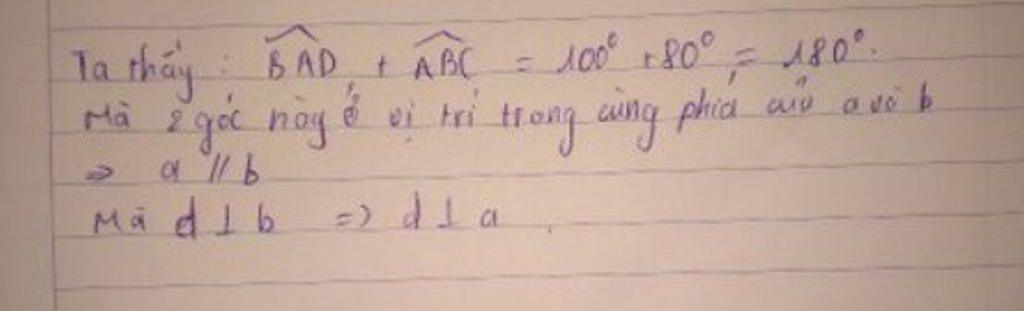 Ta thấy : $\widehat{BAD}$ + $\widehat{ABC}$ = 100° + 80° = 180°.
Mà 2 góc này ở vị trí trong cùng phía của a và b
=> a // b
Mà d ⊥ b => d ⊥ a